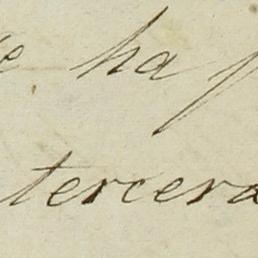 ha
tercera